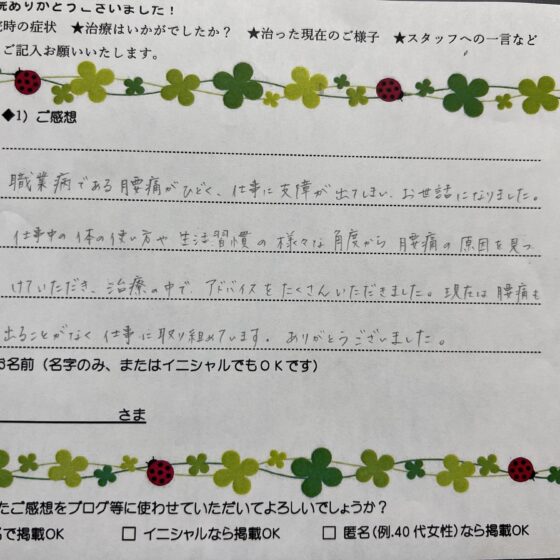 院ありがとうございました！
院時の症状　★治療はいかがでしたか？　★治った現在のご様子　★スタッフへの一言など
ご記入お願いいたします。
◆1）ご感想
職業病である腰痛がひどく、仕事に支障が出てしまい、お世話になりました。
仕事中の体の使い方や生活習慣の様々な角度から腰痛の原因を見つ
けていただき、治療の中で、アドバイスをたくさんいただきました。現在は腰痛も
出ることがなく仕事に取り組めています。ありがとうございました。
お名前（名字のみ、またはイニシャルでもＯＫです）
さま
たご感想をブログ等に使わせていただいてよろしいでしょうか？
で掲載OK　□ イニシャルなら掲載OK　□ 匿名(例.40 代女性)なら掲載OK